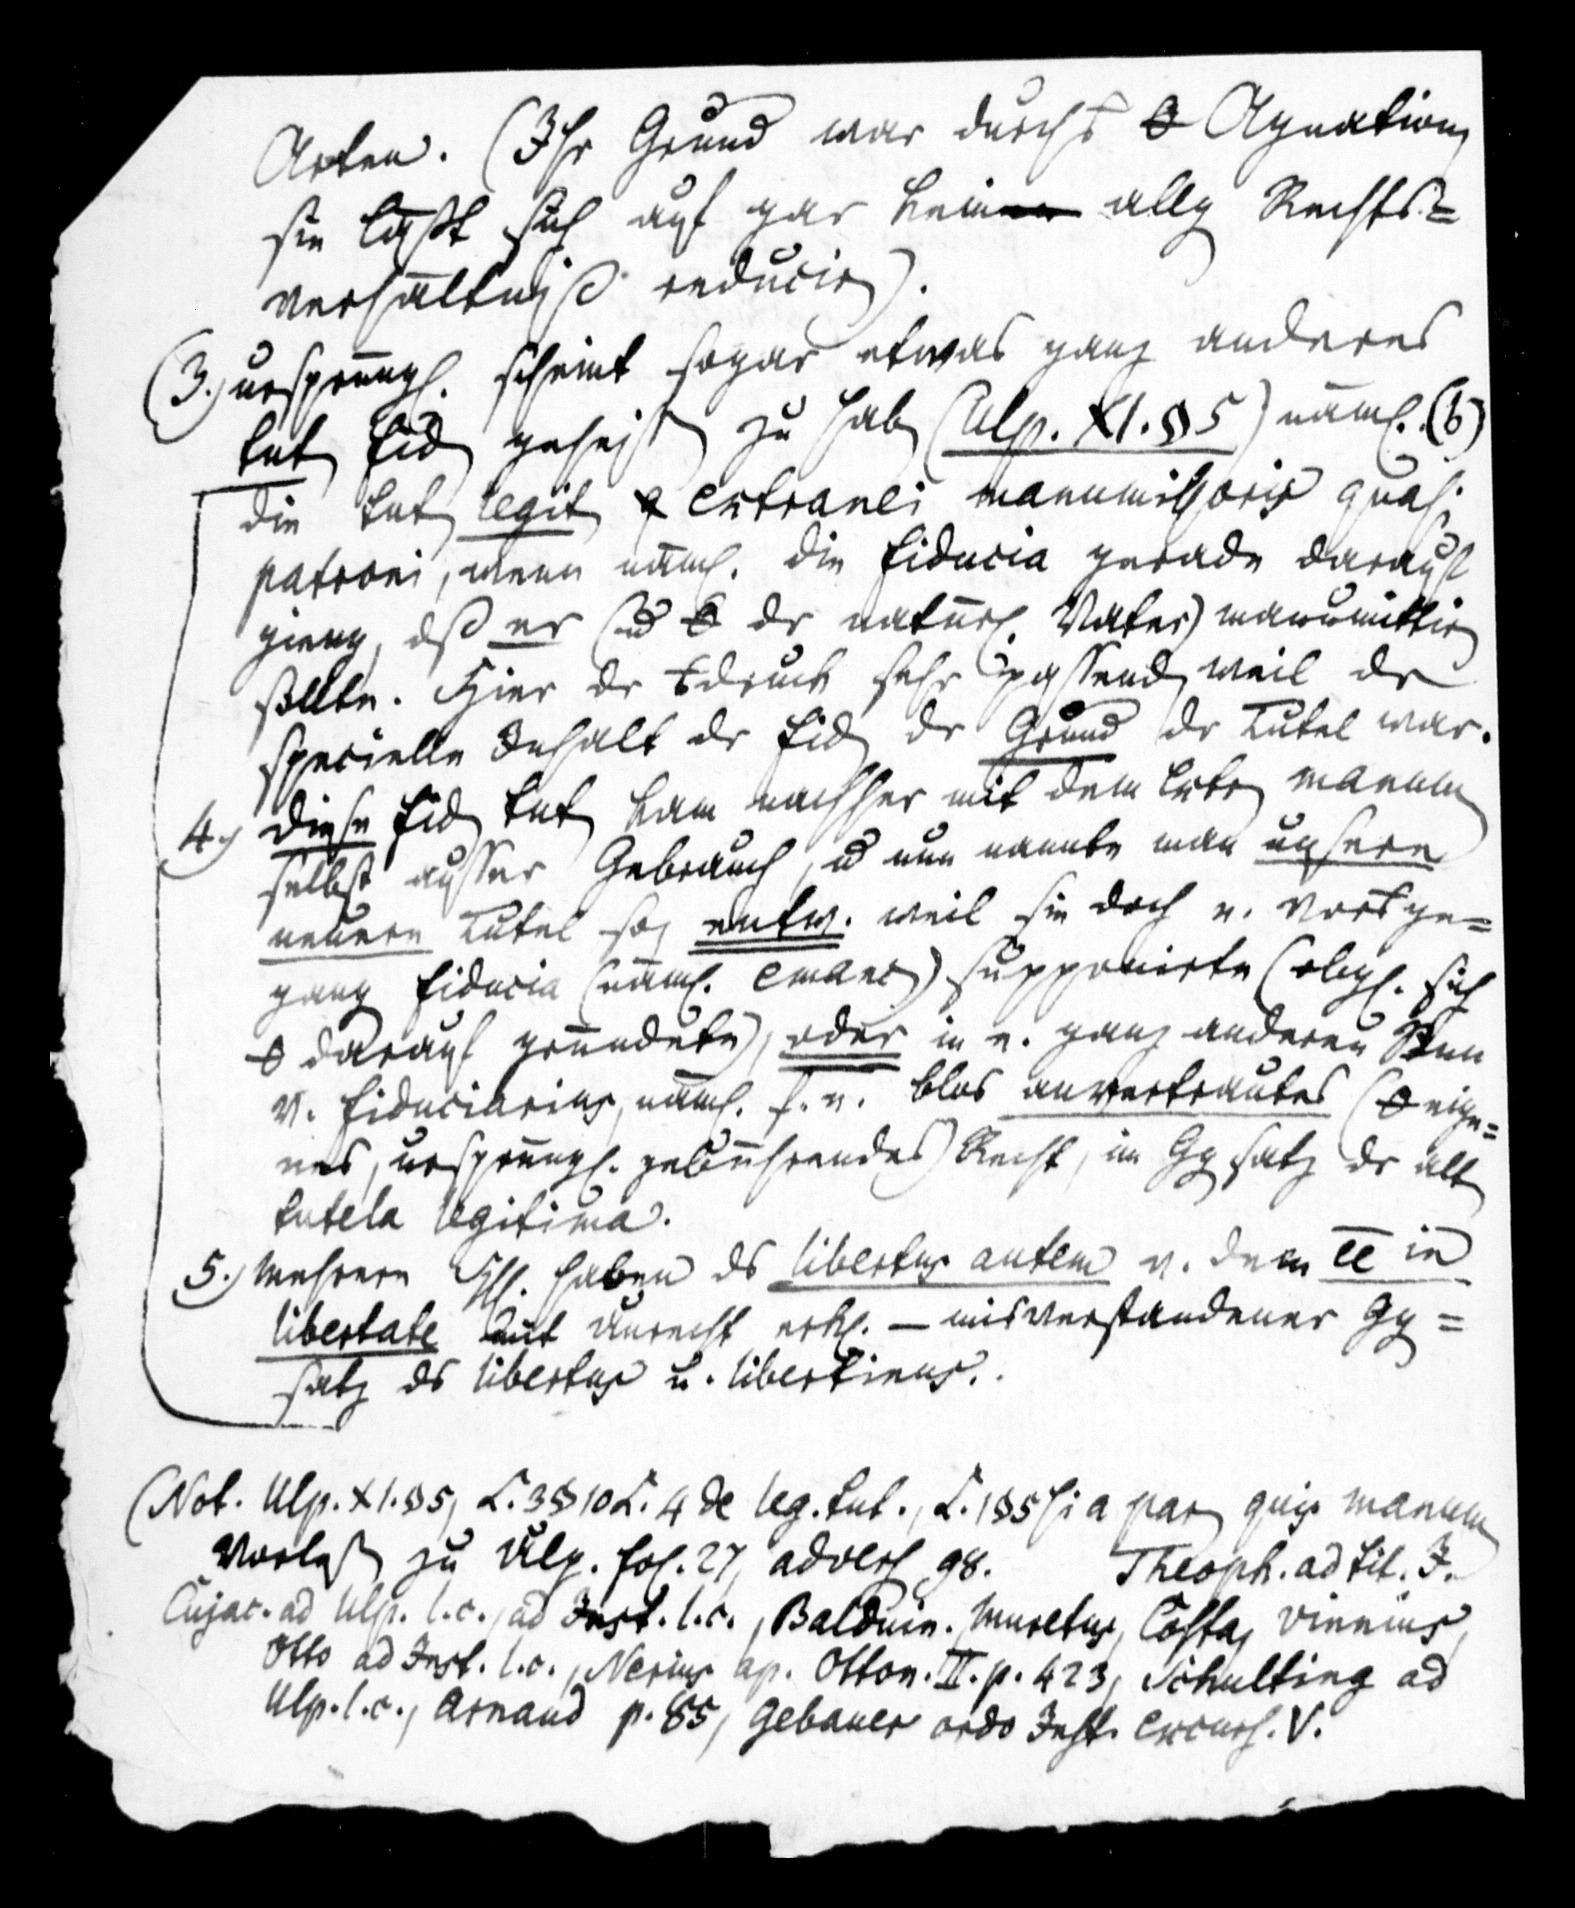 Arten. (Ihr Grund war durchs Agnation,
sie läßt sich auf gar kein allg Rechts=
verhältniß reducir).
(3.) ursprüngl. scheint sogar etwas ganz anderes
tut fid geheiß zu hab (Ulp. XI. § 5) näml. (b)
die tut legit extranei manumissoris quasi
patroni, wenn näml. die fiducia gerade darauf
gieng, dß er (u der natürl. Vater) manumittir
sollte. Hier dr druck sehr passend, weil dr
specielle Inhalt dr fid dr Grund dr Tutel war.
4.) diese fid tut kam nachher mit dem extr manum
selbst ausser Gebrauch, u nun nannte man unsere
neuere Tutel so, entw. weil sie doch e. vorge=
gang fiducia (näml. emanc) supponirte (obgl. sich
darauf gründete), oder in e. ganz anderen Sinn
v. fiduciarius, näml. f. e. blos anvertrautes (eige=
nes, ursprüngl. gebührendes) Recht, im Ggsatz dr alt
tutela legitima.
5.) Mehrere haben ds libertus autem v. dem ee in
libertate mit Unrecht erkl. — misverstandener Gg=
satz ds libertus u. libertinus.
(Not. Ulp. XI. § 5, L. 3 § 10 L. 4 de leg. tut., L. 1 § 5 si a par quis manum
Vorles zu Ulp. fol. 27, advers 98. Theoph. ad tit. J.
Cujac. ad Ulp. l. c., ad Inst. l. c., Balduin. Muretus, Costa, Vinnius,
Otto ad Inst. l. c., Nerius ap. Otton. II. p. 423, Schulting ad
Ulp. l. c., Arnaud p. 85, Gebauer ordo Inst. excurs. V.